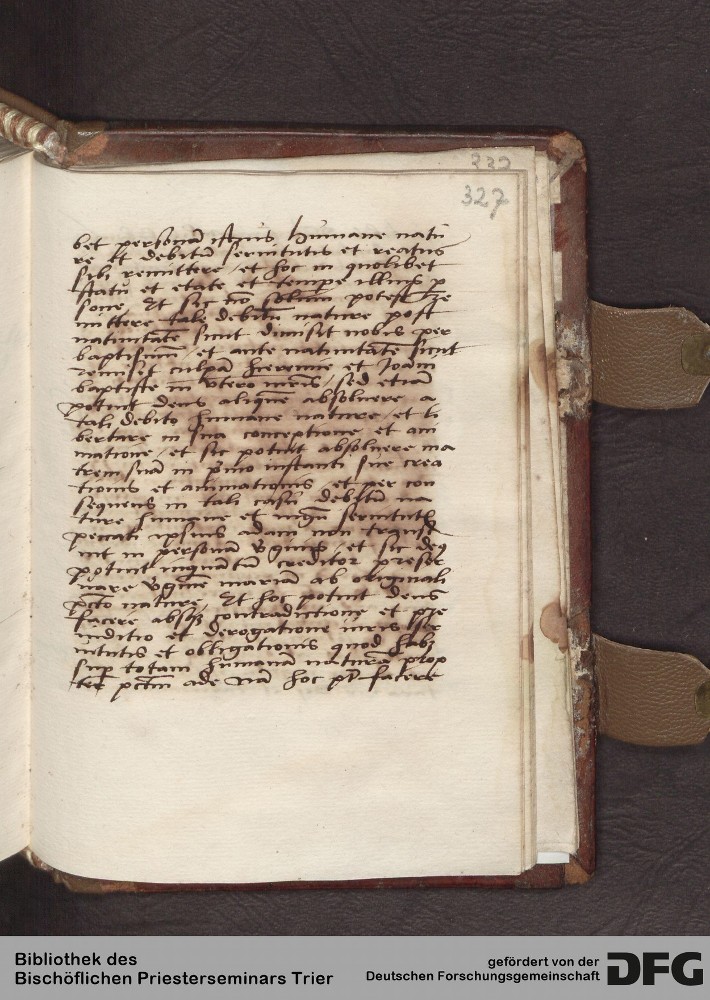 332
327
bet personā istius humane natu
re et debitū seruitutis et reatus
sibi remittere / et hoc in quolibet
statu et etate et tempe illius p
sone Et sic nō solum potest
mittere tale debitū nature post
natiuitatē sicut dimisit nobis per
baptismū / et ante natiuitatē sicut
remisit culpā hieremie et Joan
baptiste in vtero mris / sed etiā
potuit deus aliquē absoluere a
tali debito humane nature / et li
bertare in sua conceptione et ani
matione / et sic potuit absoluere ma
trem suā in pmo instanti sue crea
tionis et animationis / et per con
sequens in tali casu debitū na
ture humane et seruitutis
peccati ipsius adam non transi
uit in personā vginis / et sic deus
potuit inquantū creditor preser
uare vginē mariā ab originali
pctō nature / Et hoc potuit deus
facere absqz contradictione et pre
iuditio et derogatione iuris ser
uitutis et obligationis quod habz
sup totam humanā naturā prop
ter pctm ade Nā hoc facere
Bibliothek des
Bischöflichen Priesterseminars Trier
gefördert von der
Deutschen Forschungsgemeinschaft
DFG